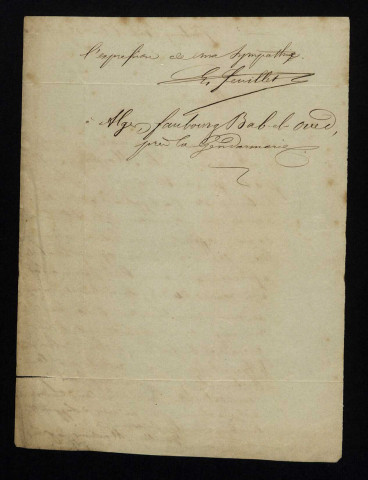 l'expression de ma sympathie.
E. Feuillet
à Alger, faubourg Bab-el-oued,
près la Gendarmerie